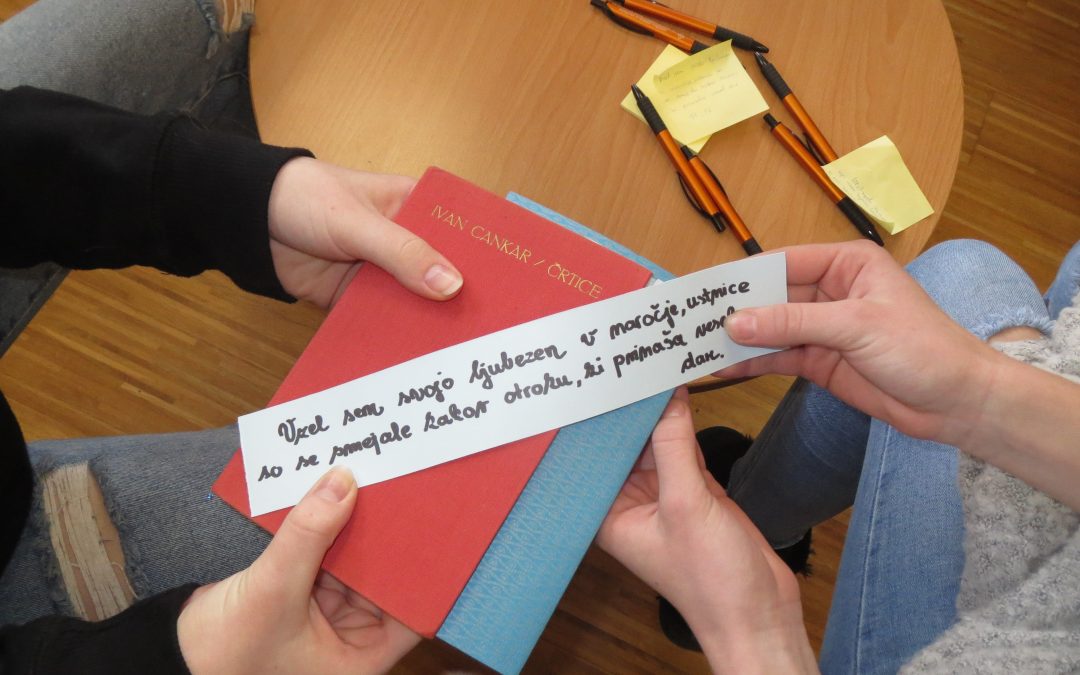 IVAN CANKAR / ČRTICE
Vzel sem svojo ljubezen v naročje, ustnice
so se smejale kakor otroku, ki prinaša vesel
dar.